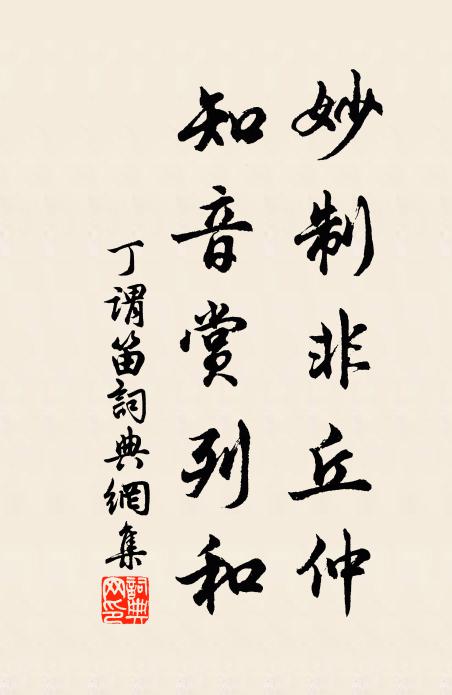 妙制非丘仲
知音赏列和
丁谓笛詞典網集
詞典网印